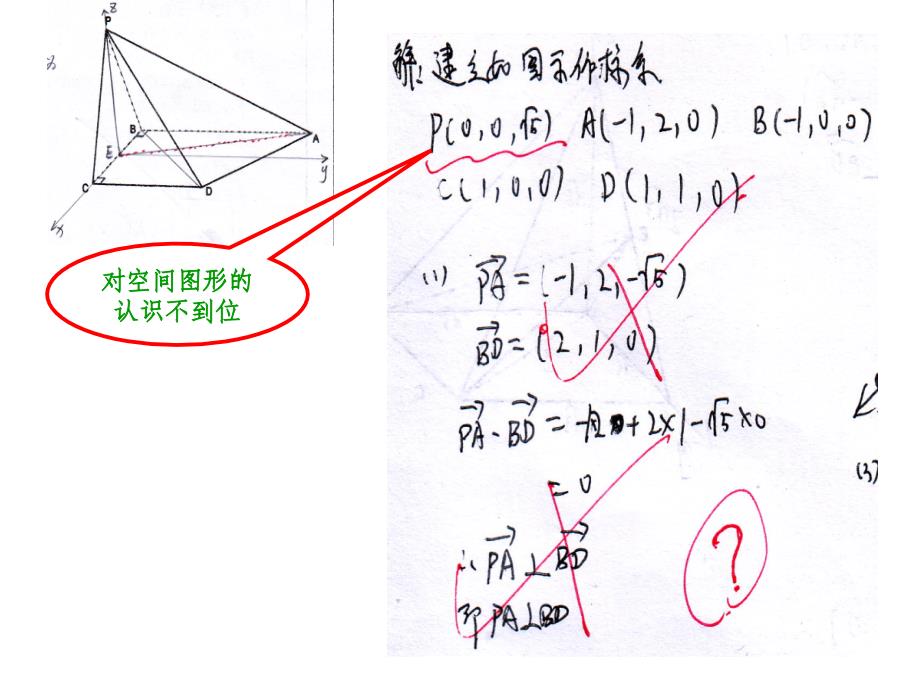 z
P
B
A
E
y
C
D
x
对空间图形的
认识不到位
解：建立如图示作标系
P(0,0,√5) A(-1,2,0) B(-1,0,0)
C(1,0,0) D(1,1,0)
(1) PA = (-1,2,-√5)
BD = (2,1,0)
PA·BD = + 2×1-√5×0
= 0
∴ PA⊥BD
即 PA⊥BD
?
(3)